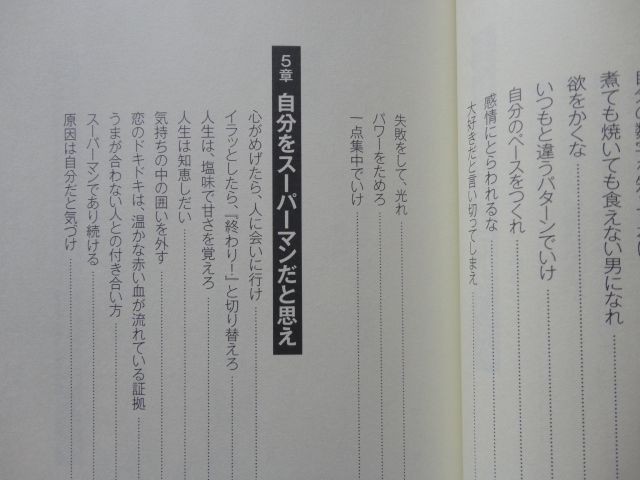 煮ても焼いても食えない男になれ
欲をかくな
いつもと違うパターンでいけ
自分のペースをつくれ
感情にとらわれるな
大好きだと言い切ってしまえ
失敗をして、光れ
パワーをためろ
一点集中でいけ
5章 自分をスーパーマンだと思え
心がめげたら、人に会いに行け
イラッとしたら、『終わり!』と切り替えろ
人生は、塩味で甘さを覚えろ
人生は知恵しだい
気持ちの中の囲いを外す
恋のドキドキは、温かな赤い血が流れている証拠
うまが合わない人との付き合い方
スーパーマンであり続ける
原因は自分だと気づけ